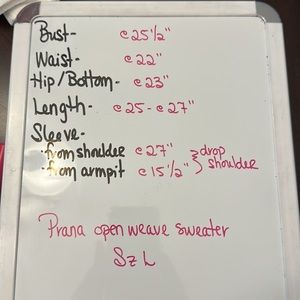 Bust- c 25½"
Waist- c 22"
Hip/Bottom- c 23"
Length- c 25 - c 27"
Sleeve-
·from shoulder c 27" } drop
·from armpit c 15½" shoulder
Prana open weave sweater
Sz L